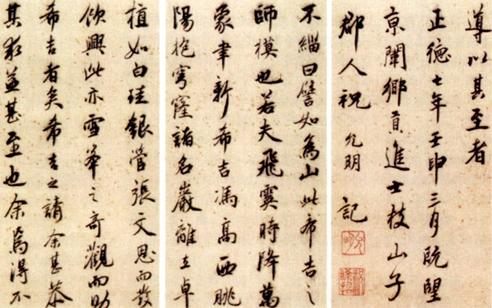 不緇曰譬如為山此希吉之
師模也若夫飛霙時降萬
象聿新希吉馮高西眺
陽抱穹窿諸名巖離立卓
植如白珪銀管張文思而發
欣興此亦雪峯之奇觀而助
希吉者矣希吉之請余甚恭
其益甚至也余焉得不
導以其至者
正德七年壬申三月既望
京闈鄉貢進士枝山子
郡人祝允明記